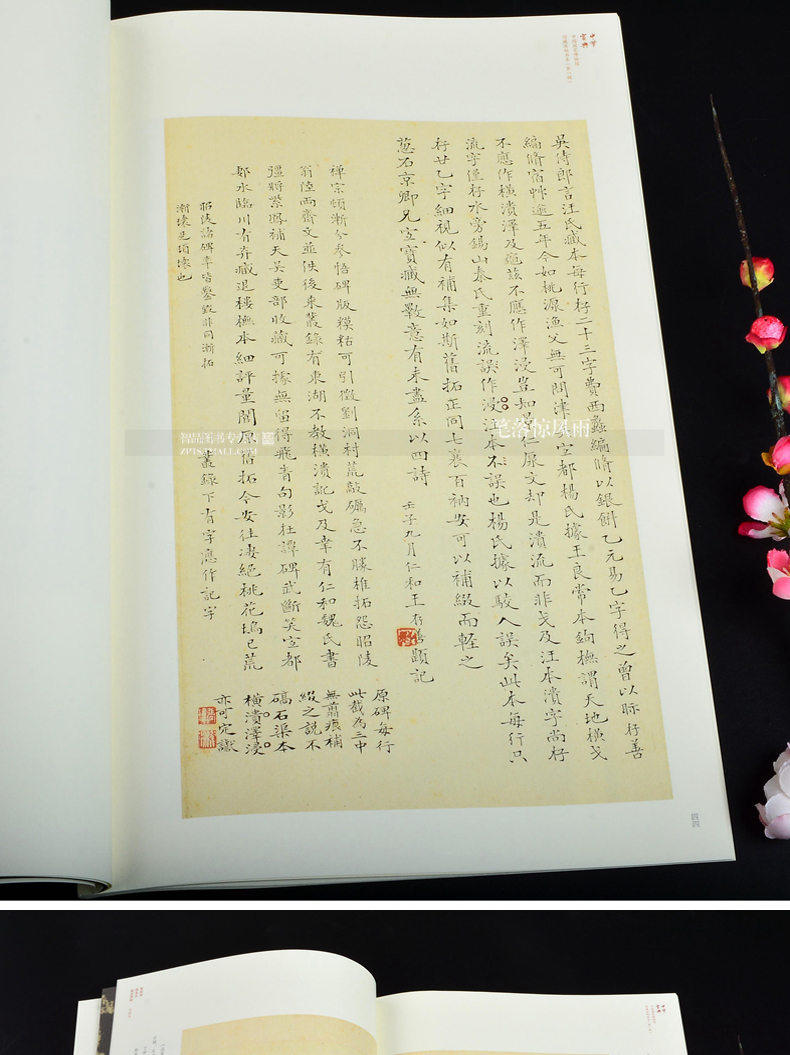 吳侍郎言汪氏藏本每行存二十三字費西蠡編脩以銀餅乙元易乙字得之曾以眎存善
編脩宿艸逾五年今如桃源漁父無可問津宜都楊氏據王良常本鉤橅謂天地橫戈
不應作橫潰澤及 不應作澤浸豈知 原文却是潰流而非戈及汪本潰字尚存
流字僅存水旁錫山秦氏重刻流誤作浸汪本不誤也楊氏據以駮人誤矣此本每行只
存廿乙字細視似有補集如斯舊拓正同七襄百衲安可以補綴而輕之
蔥石京卿兄寔寶藏無斁意有未盡系以四詩
壬子九月仁和王存善題記
禪宗頓漸分參悟碑版模糊可引徵劉洞村荒敲礪急不勝椎拓怨昭陵
翁陸兩齋文並佚後來叢錄有東湖不教橫潰記戈及幸有仁和魏氏書
彊將紫 補天吳吏部收藏可據無留得飛青句影杜譚碑武斷笑宜都
鄰水臨川有弆藏退樓橅本細評量閣原舊拓今安往凄絕桃花塢已荒
昭陵諸碑率皆鑿 非同漸拓
漸壞是項壞也
叢錄下有字應作記字
原碑每行
此截為三中
無翦痕補
綴之說不
碻石渠本
橫潰澤浸
亦可定讞
中華寶典
四四
笔落惊风雨
智品图书专